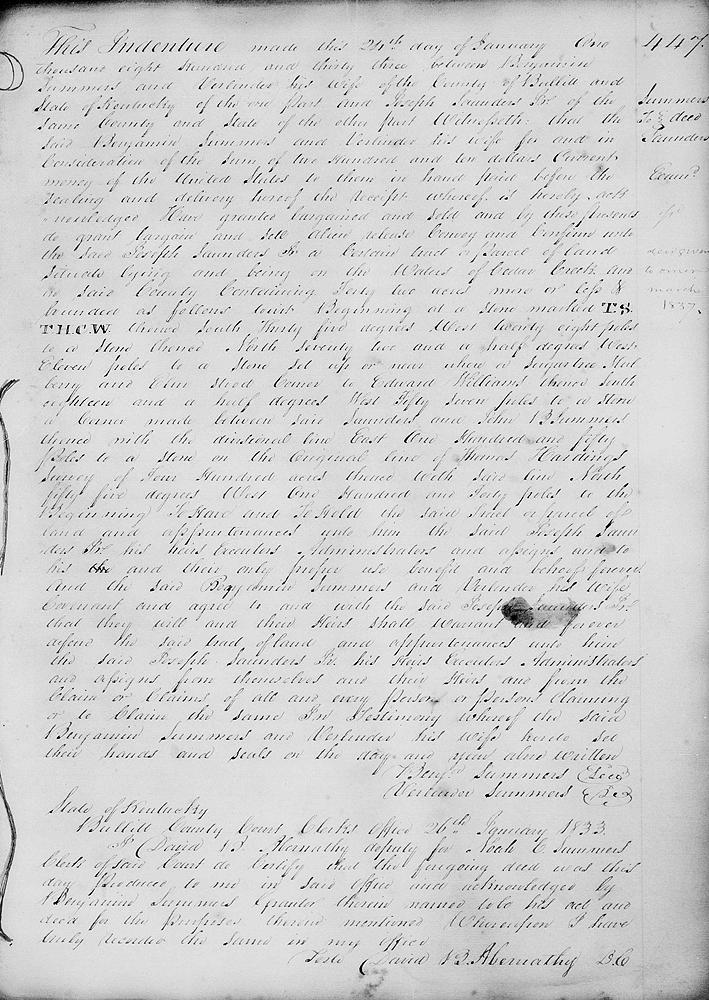 447.
This Indenture made this 24th day of January One
thousand eight Hundred and thirty three between Benjamin
Summers and Verlender his Wife of the County of Bullitt and
State of Kentucky of the one part and Joseph Saunders Sr. of the
same County and State of the other part Witnesseth: that the
said Benjamin Summers and Verlender his wife for and in
Consideration of the Sum of two Hundred and ten dollars Current
money of the United States to them in hand paid before the
sealing and delivery hereof the receipt whereof is hereby ack
nowledged Have granted bargained and sold and by these presents
do grant bargain and sell alien release Convey and Confirm unto
the said Joseph Saunders Sr a Certain tract or parcel of land
Situate lying and being on the Waters of Cedar Creek and
in said County Containing Forty two acres more or less &
bounded as follows towit Beginning at a stone marked T.S.
T.H.C.W. thence South Thirty five degrees West twenty eight poles
to a stone thence North seventy two and a half degrees West
Eleven poles to a stone set up or near where a Sugartree Mul
berry and Elm stood Corner to Edward Williams thence South
eighteen and a half degrees West Fifty seven poles to a stone
a Corner made between said Saunders and John B Summers
thence with the divisional line East One Hundred and fifty
poles to a stone on the Original line of Thomas Hardings
survey of Four Hundred acres thence with said line North
fifty five degrees West One Hundred and Forty poles to the
Beginning To Have and To Hold the said tract or parcel of
land and appurtenances unto him the said Joseph Saun
ders Sr. his heirs Executors Administrators and assigns and to
his the and their only proper use benefit and behoof forever
And the said Benjamin Summers and Verlender his Wife
Covenant and agree to and with the said Joseph Saunders Sr.
that they will and their Heirs shall Warrant and forever
defend the said tract of land and appurtenances unto him
the said Joseph Saunders Sr. his Heirs Executors Administrators
and assigns from themselves and their Heirs and from the
Claim or Claims of all and every person or persons Claiming
or to Claim the same In Testimony whereof the said
Benjamin Summers and Verlender his Wife hereto set
their hands and seals on the day and year above written
Benjn. Summers (Seal)
Verlender Summers (Seal)
State of Kentucky
Bullitt County Court Clerks Office 26th January 1833.
I David B. Abernathy deputy for Noah C Summers
Clerk of said Court do Certify that the foregoing deed was this
day produced to me in said Office and acknowledged by
Benjamin Summers Grantor therein named to be his act and
deed for the purposes therein mentioned Whereupon I have
truly recorded the same in my office
Teste David B. Abernathy D.C.
Summers
To } deed
Saunders
Examd.
march
1837.